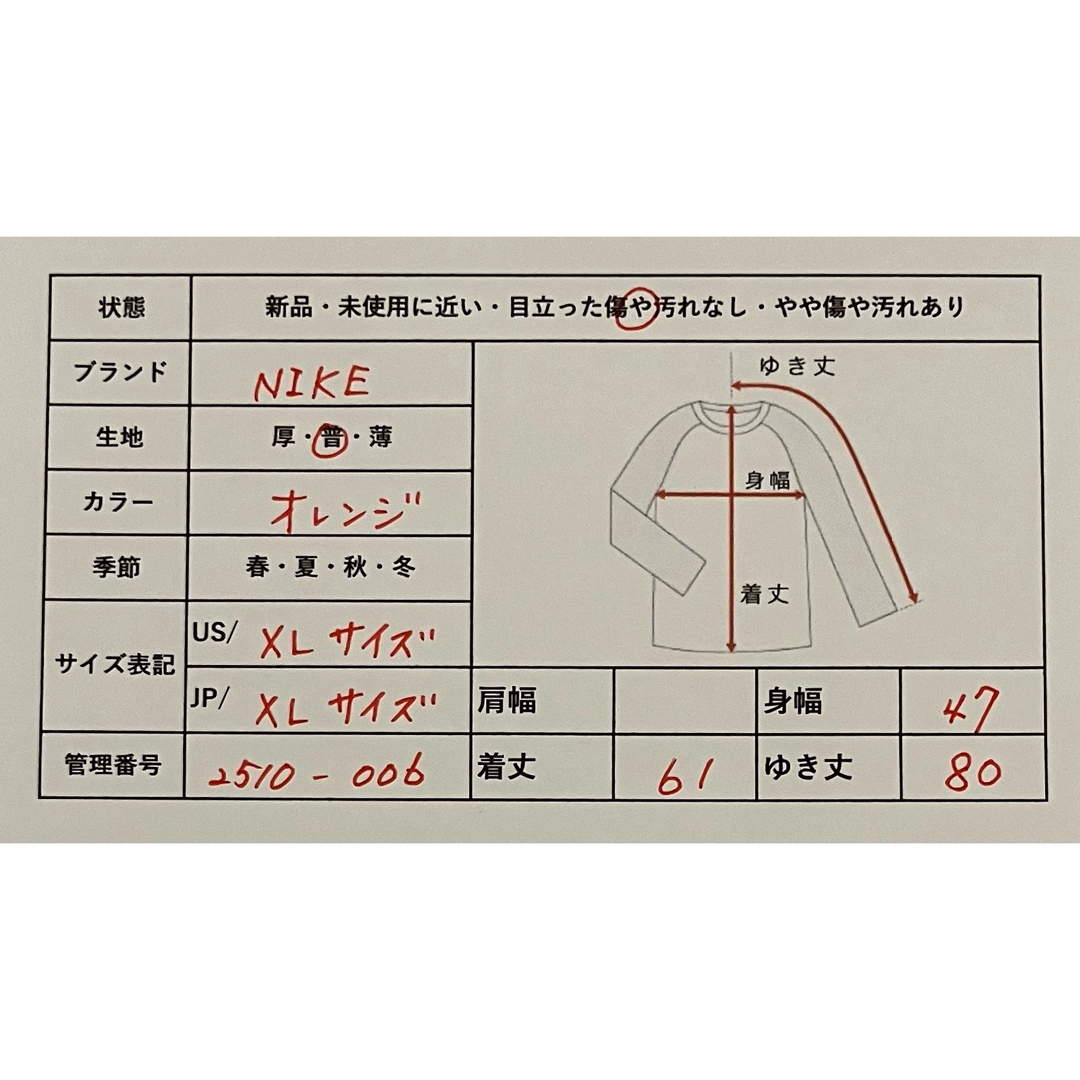 状態 新品・未使用に近い・目立った傷や汚れなし・やや傷や汚れあり
ブランド NIKE
生地 厚・普・薄
カラー オレンジ
季節 春・夏・秋・冬
サイズ表記
US/ XL サイズ
JP/ XL サイズ
管理番号 2510-006
ゆき丈
身幅
着丈
肩幅 身幅 47
着丈 61 ゆき丈 80